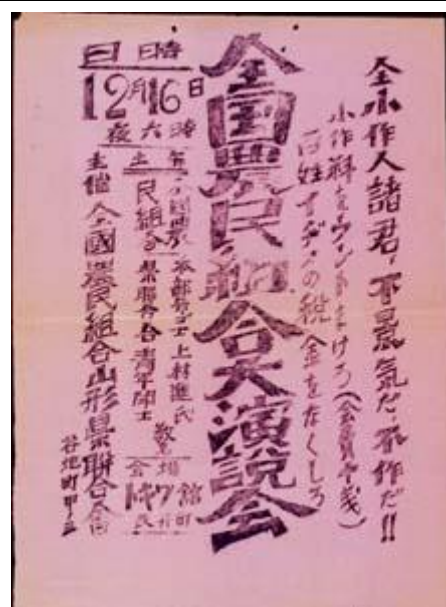 全小作人諸君、不景気だ、不作だ!!
小作料をウンとまけろ（会費十銭）
百姓イヂメの税金をなくしろ
全国農民組合大演説会
日時
12月16日
夜六時
弁士
全国農民組合
本部弁士上村進氏
県聯合会青年闘士
会場
トキワ館
主催 全國農民組合山形県聯合会
谷地町甲二